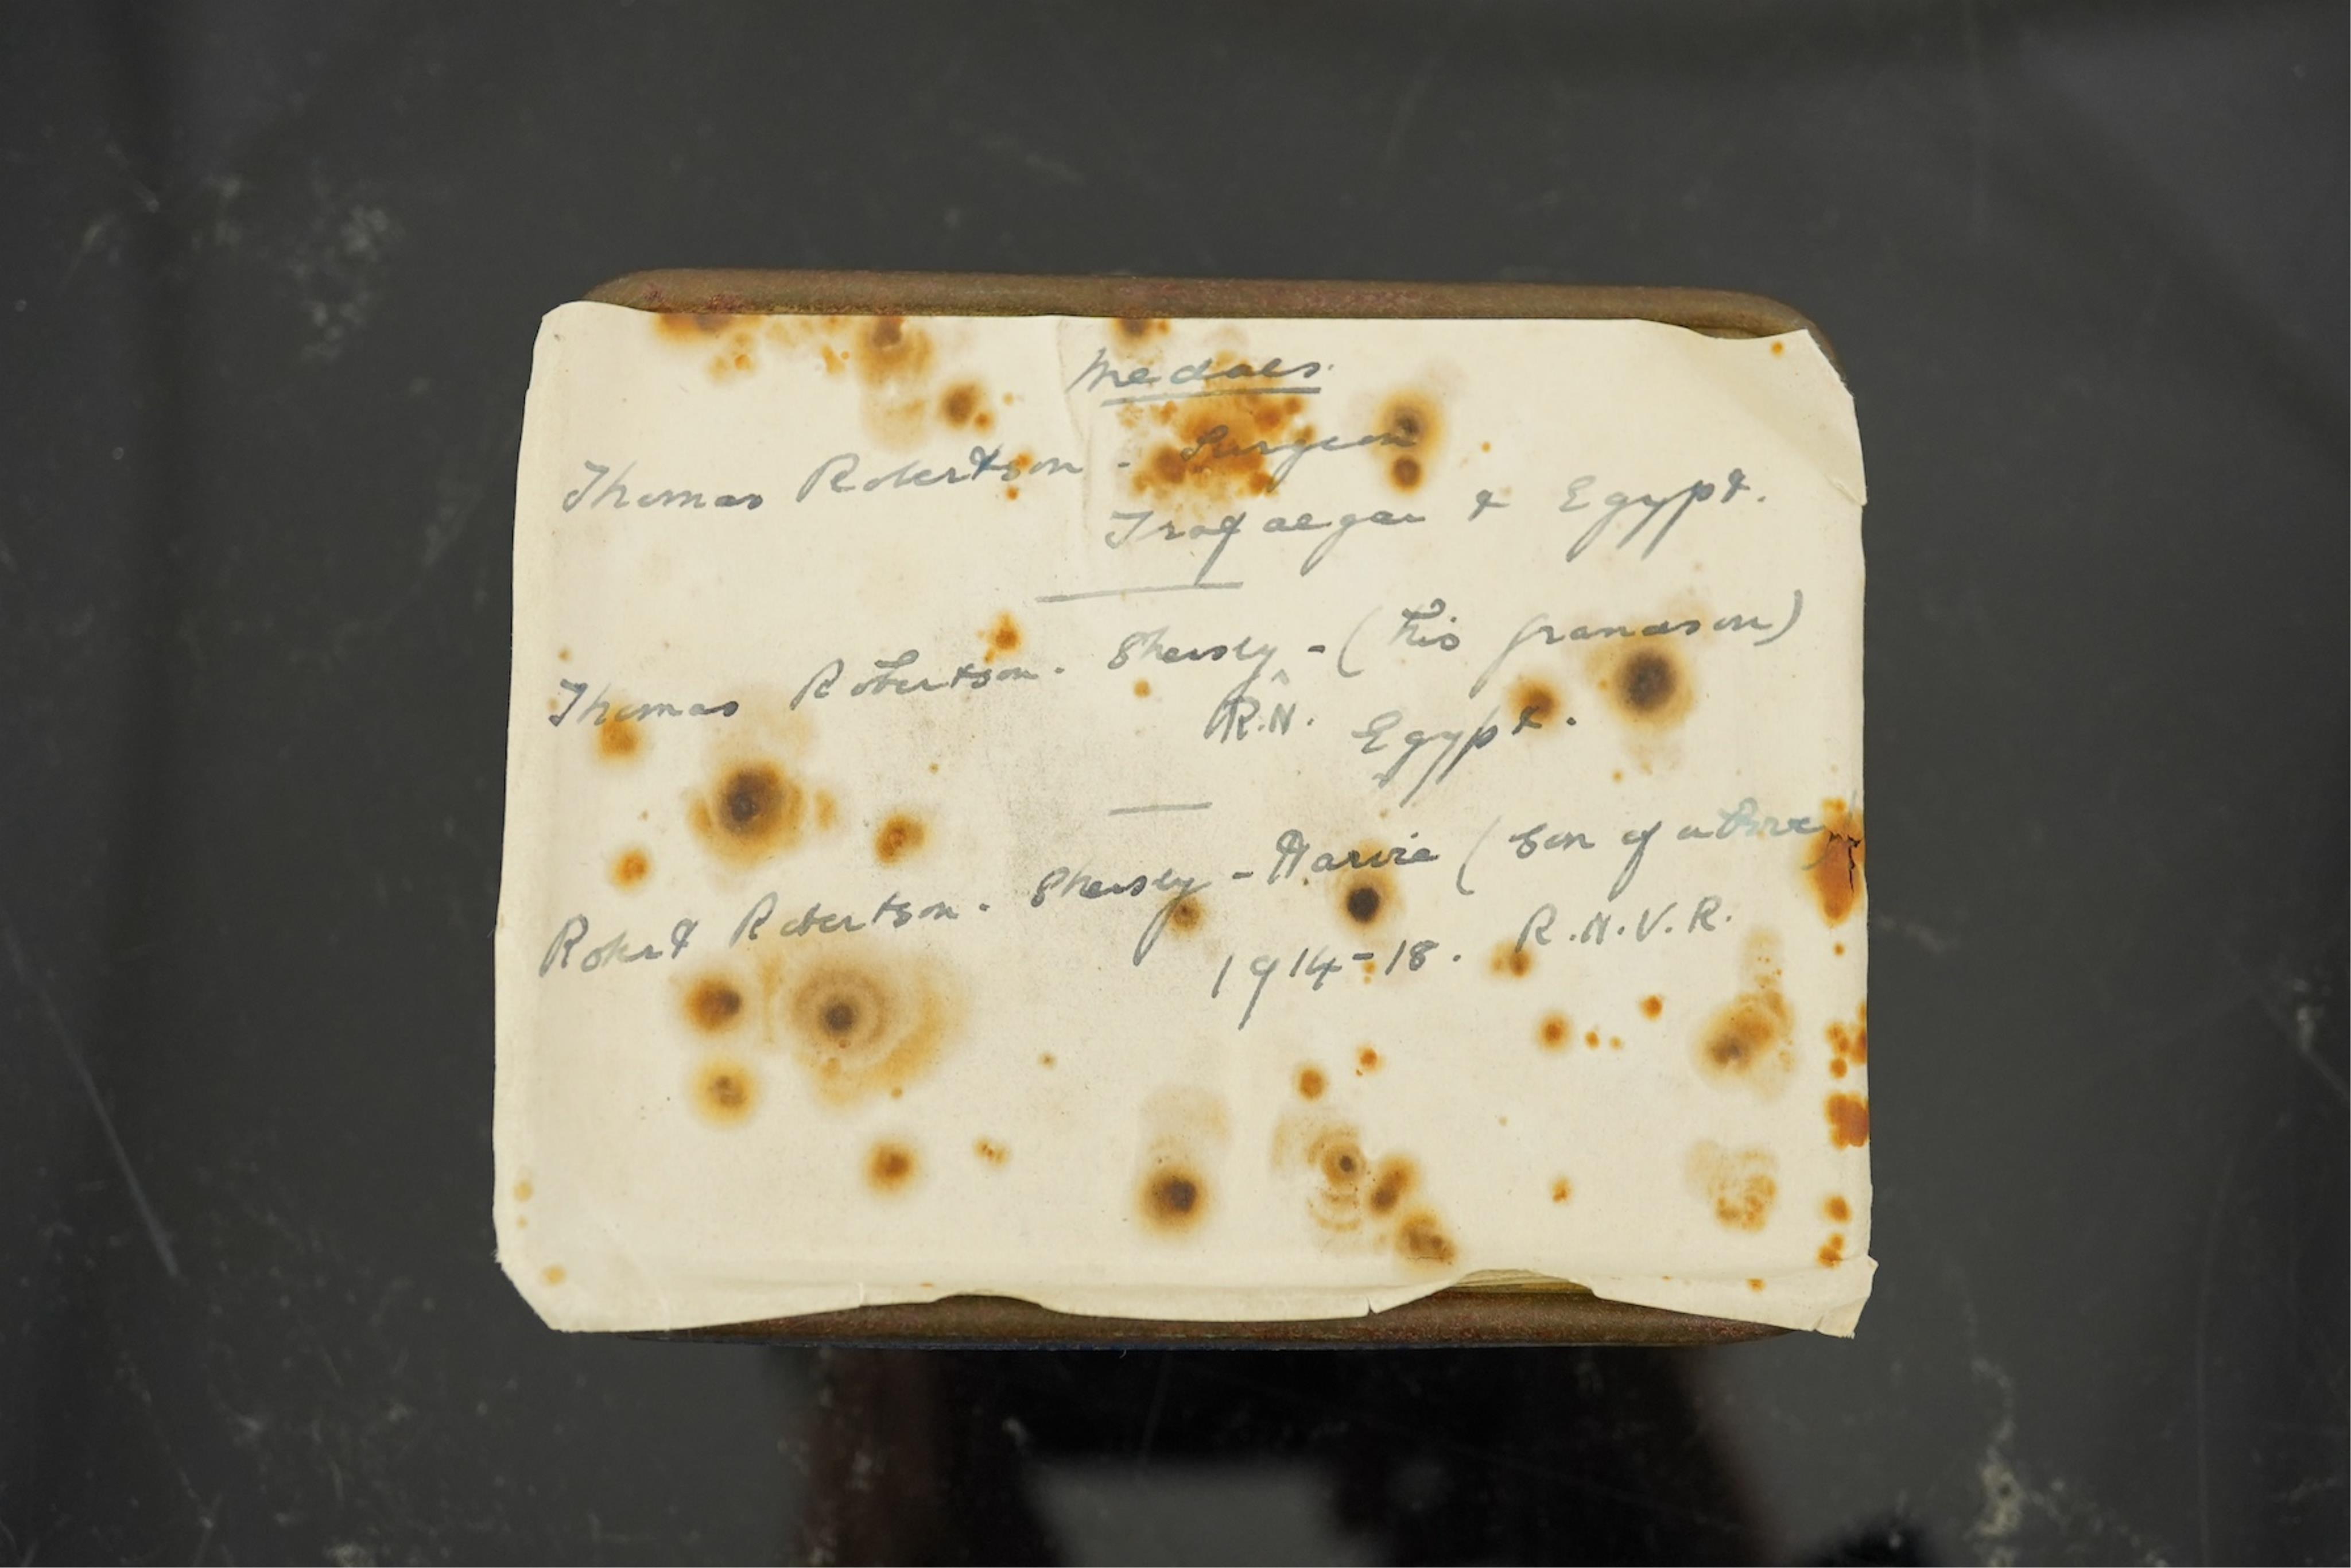 Medals.
Thomas Robertson - Surgeon
Trafalgar & Egypt.
Thomas Robertson - Shersby - (his grandson)
R.N. Egypt.
Robert Robertson - Shersby - Harvie (Son of above)
1914-18. R.N.V.R.